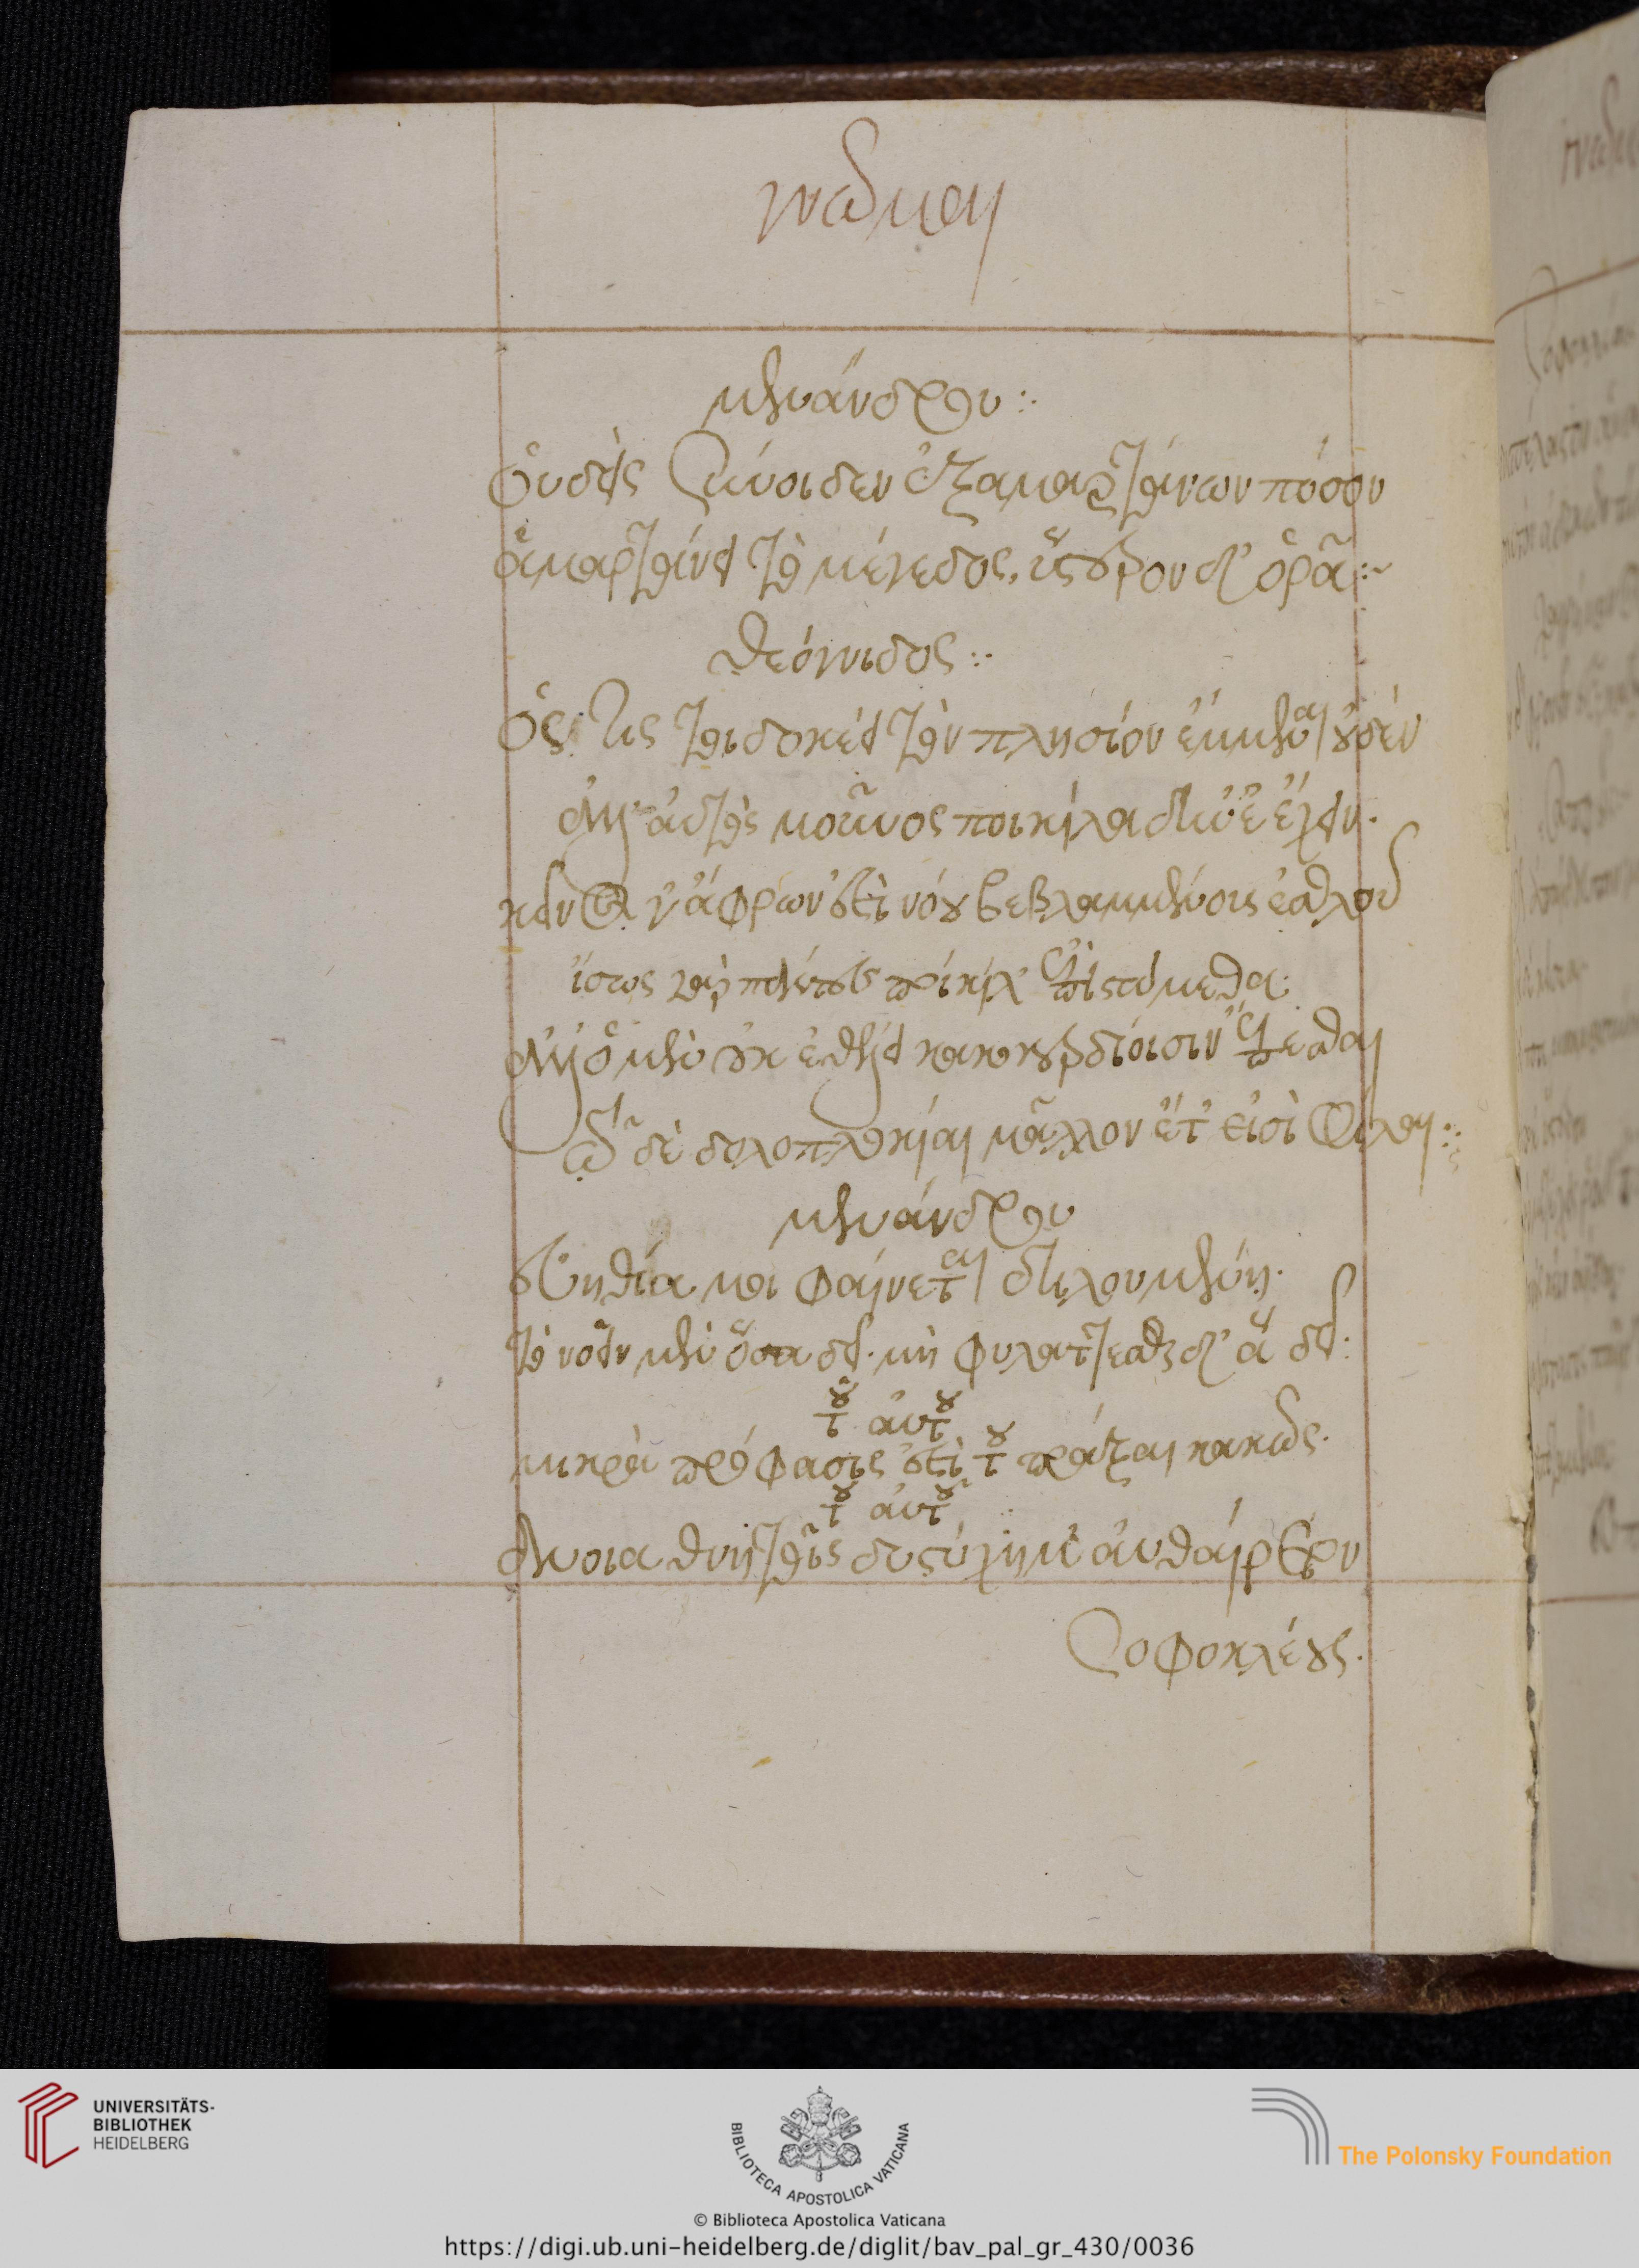 γνῶμαι
μενάνδρου:·
ὀυδεὶς ξύνοιδεν ἐξαμαρτάνων πόσον
ἁμαρτάνει τὸ μέγεθος, ὕστερον δ' ὁρᾶ:~
θεόγνιδος:·
ὅς τις τοι δοκέει τὸν πλησίον ἔμμεναι οὐδὲν
ἀλλ' ἀυτὸς μοῦνος ποικίλα δήνε' ἔχειν.
κεῖνος γ' ἄφρων ἐστὶ νόου βεβλαμμένος ἐσθλοῦ
ἴσως γὰρ πάντες ποικίλ' ἐπιστάμεθα:
ἀλλ' ὁ μὲν οὐκ ἐθέλει κακοκερδίοισιν ἕπεσθαι
τῷ δὲ δολοπλοκίαι μᾶλλον ἔτ' εἰσὶ φίλαι:·
μενάνδρου
ἐυηθία μοι φαίνεται δηλουμένη.
τὸ νοεῖν μὲν ὅσα δεῖ. μὴ φυλάττεσθαι δ' ἃ δεῖ:
τοῦ ἀυτοῦ
μικρὰ πρόφασις ἐστὶ τοῦ πρᾶξαι κακῶς.
τοῦ ἀυτοῦ
ἄνοια θνητοῖς δυστύχημ' ἀυθαίρετον
Σοφοκλέους.
UNIVERSITÄTS-
BIBLIOTHEK
HEIDELBERG
BIBLIOTECA APOSTOLICA VATICANA
The Polonsky Foundation
© Biblioteca Apostolica Vaticana
https://digi.ub.uni-heidelberg.de/diglit/bav_pal_gr_430/0036